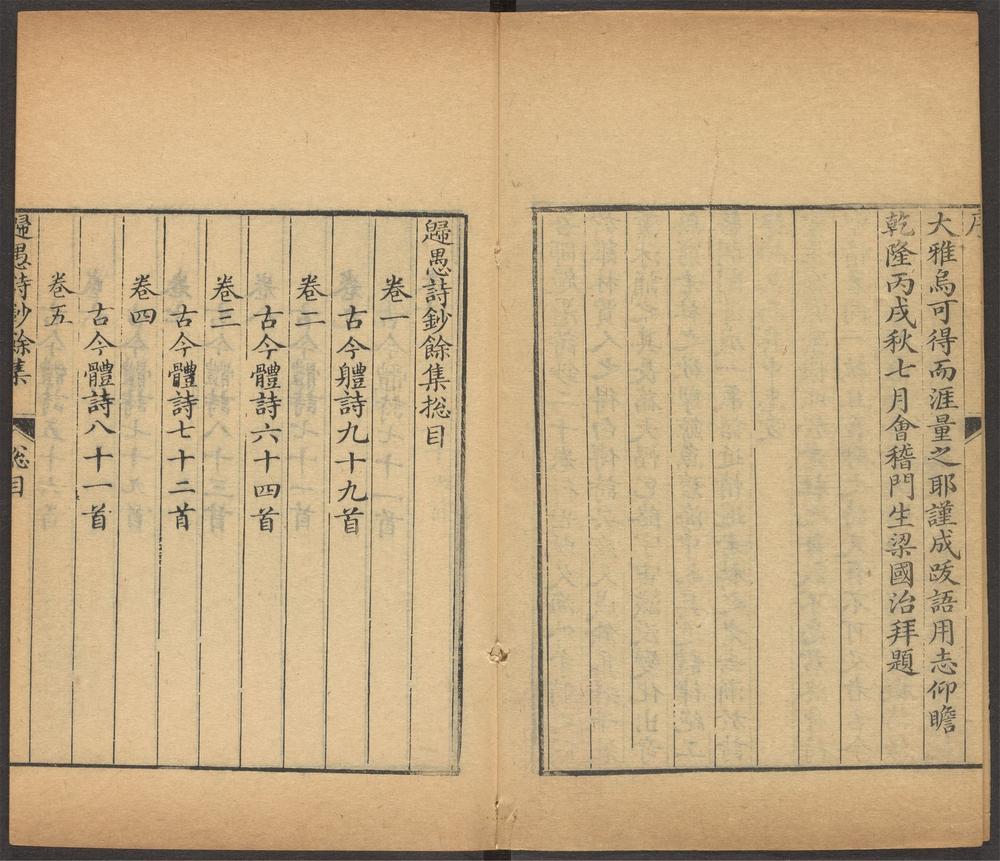 序
大雅烏可得而涯量之耶謹成跋語用志仰瞻
乾隆丙戌秋七月會稽門生梁國治拜題
歸愚詩鈔餘集捴目
卷一
古今軆詩九十九首
卷二
古今體詩六十四首
卷三
古今體詩七十二首
卷四
古今體詩八十一首
卷五
歸愚詩鈔餘集
捴目